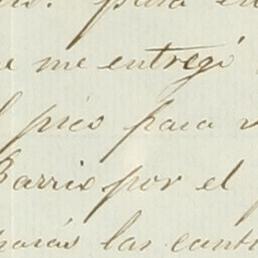 para
me entregó
pico para
Barrio por el
las cant